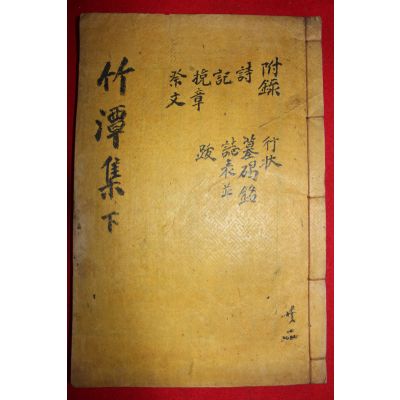 竹潭集下
附錄
詩
記
挽章
祭文
行狀
墓碣銘
誌表並
跋